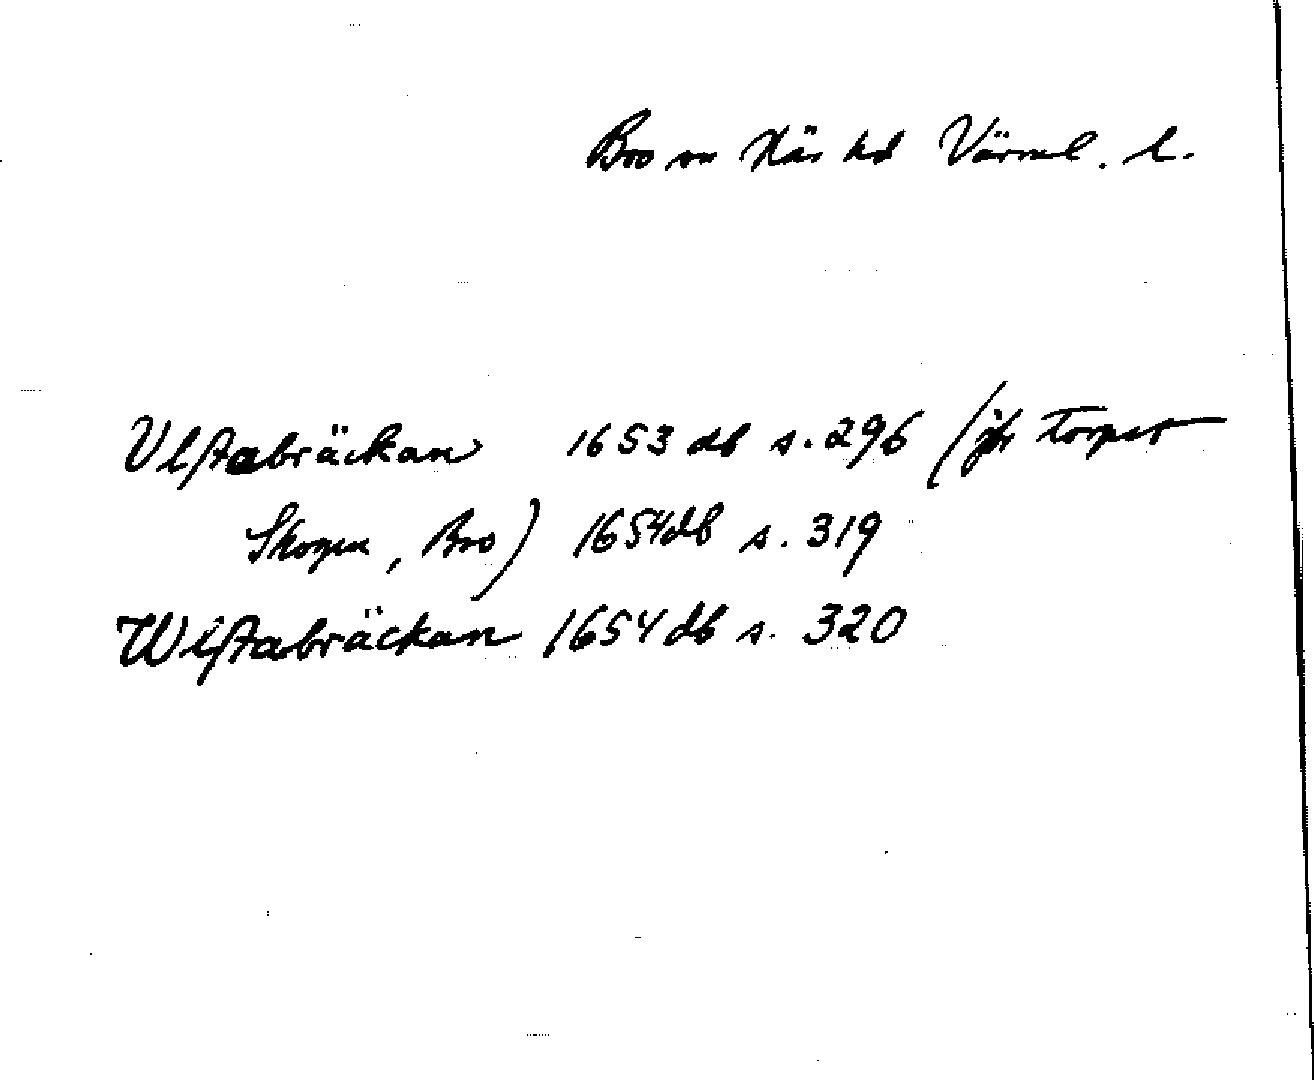 Bro sn Näs hd Värml. l.
Ulstabräckan 1653 db s. 296 (jfr torpet
Skogen, Bro) 1654 db s. 319
Wlstabräckan 1654 db s. 320